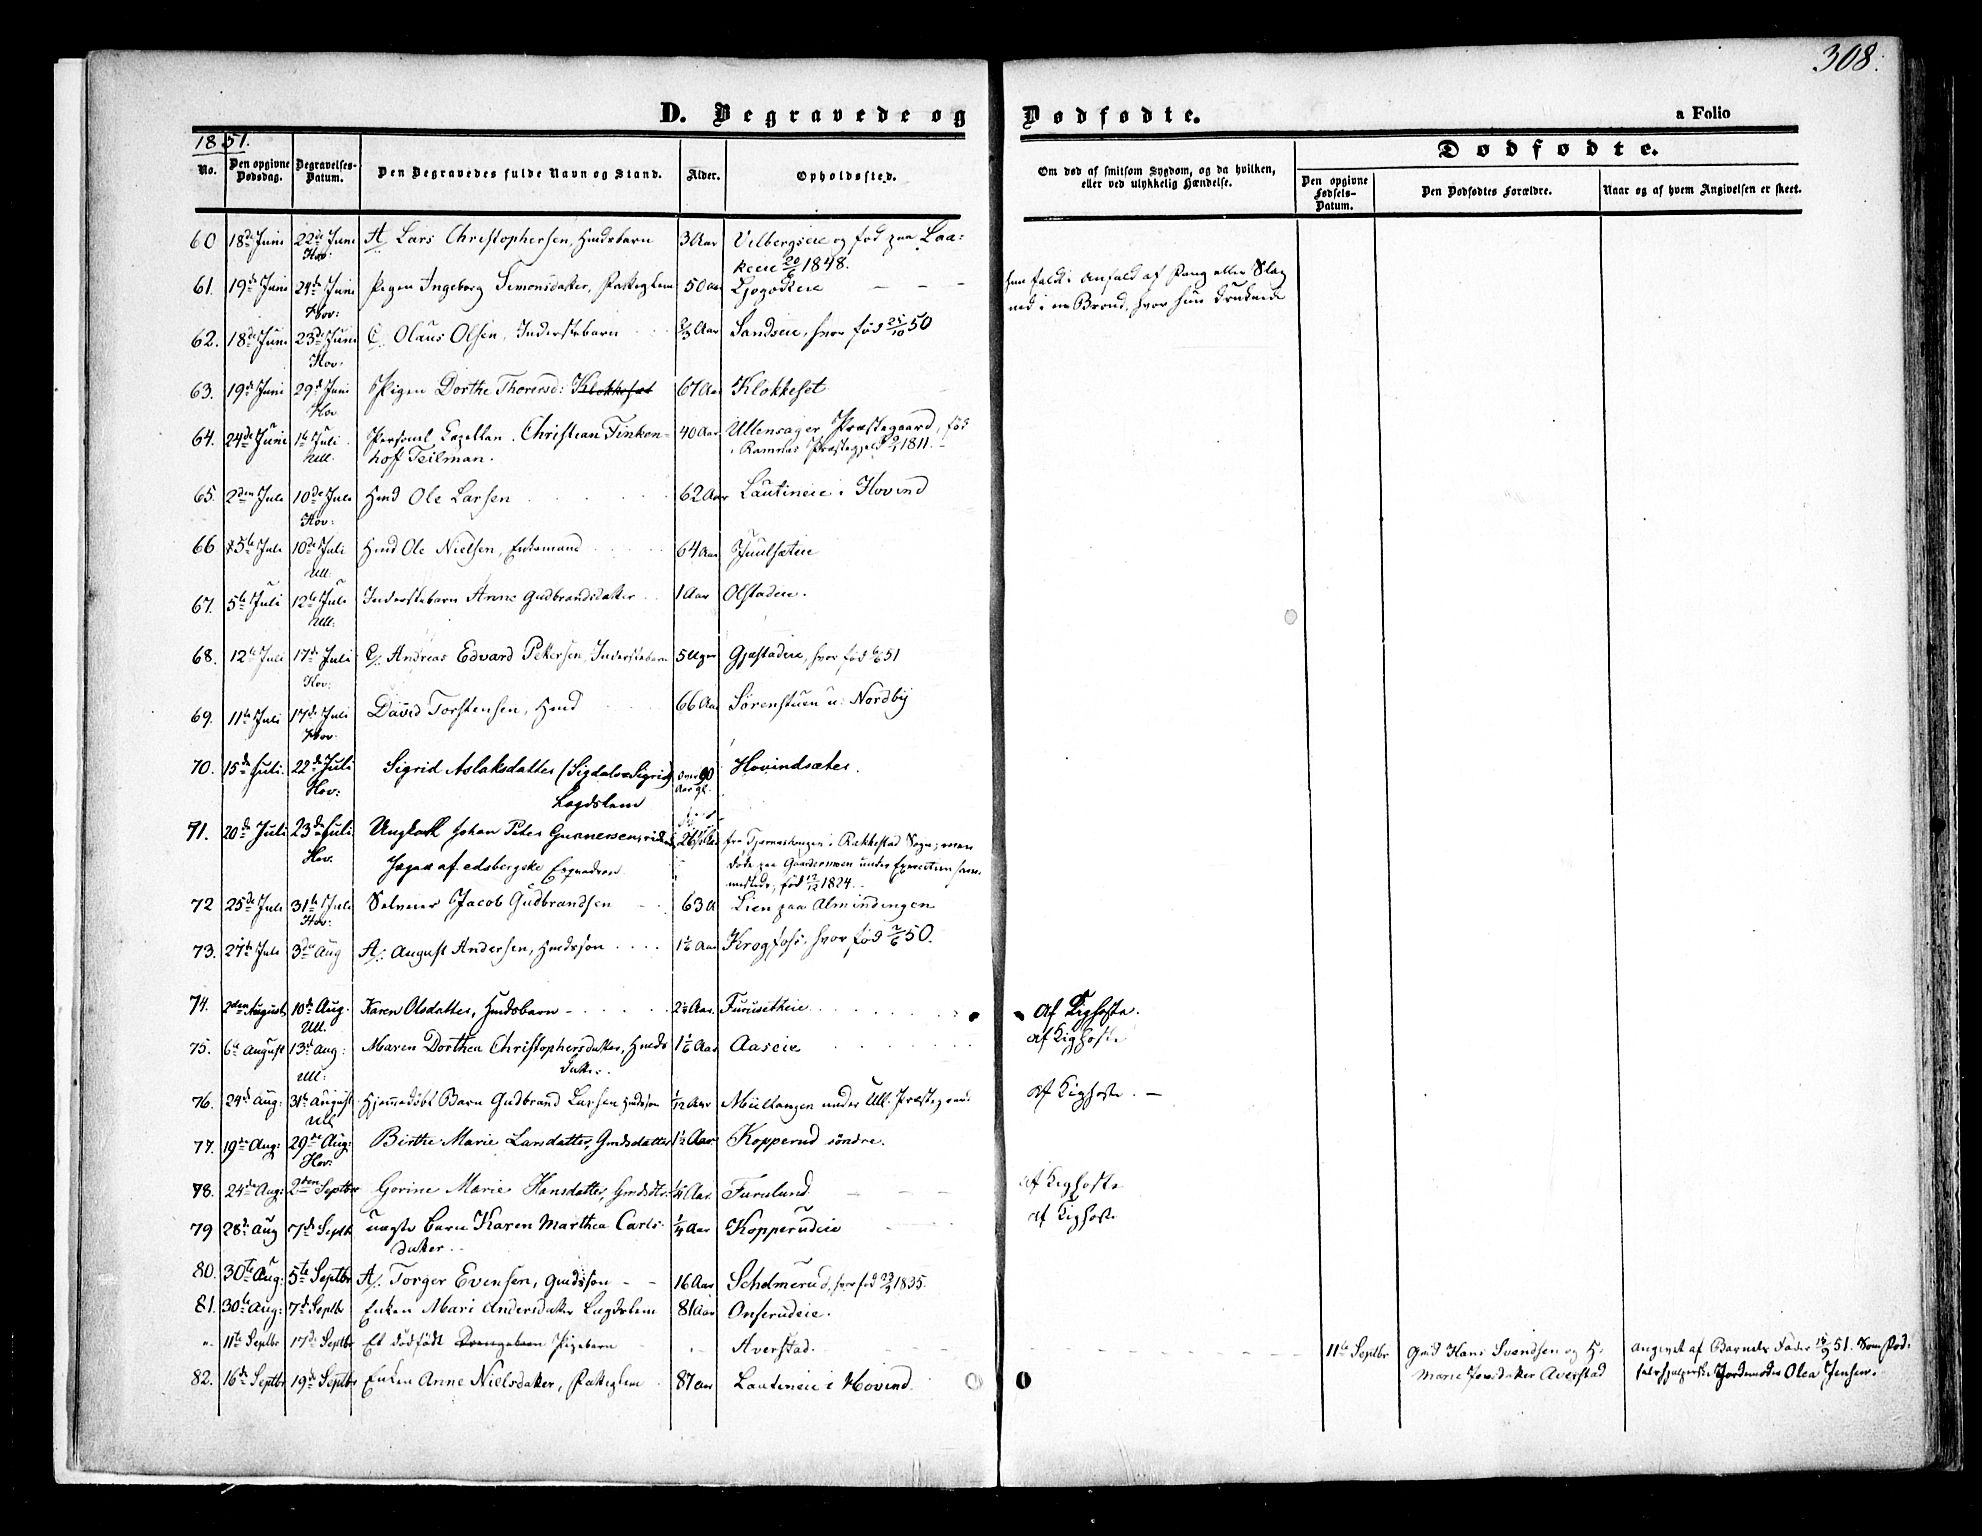 308.
D. Begravede og Dødfødte.
a Folio
1851.
Dødfødte.
No.
Den opgivne Dødsdag.
Begravelses-Datum.
Den Begravedes fulde Navn og Stand.
Alder.
Opholdssted.
Om død af smitsom Sygdom, og da hvilken, eller ved ulykkelig Hændelse.
Den opgivne Fødsels-Datum.
Den Dødfødtes Forældre.
Naar og af hvem Angivelsen er skeet.
60 18de Juni 22de Juni A. Lars Christophersen, 3 Aar Vilbergseie og fød paa Laa-
Hov: keeie 20/6 1848.
61. 19de Juni 24de Juni Pigen Ingeborg Simonsdatter, 50 Aar
Hov: ned i en Brønd, hvor hun druknede
62. 18de Juni 23de Juni C. Olaus Olsen, Inderstebarn Aar Sandseie, hvor fød 50
Hov.
63. 19de Juni 29de Juni Pigen Dorthe Thorersd: Klokkeset 67 Aar Klokkeset
Hov
64. 24de Juni 1te Juli Personl Capellan. Christian Finken- 40 Aar Ullensager Præstegaard, fød
Ull. hoff Teilman. i Ramnæs Præstegjeld 1811.
65. 2den Juli 10de Juli Hmd Ole Larsen 62 Aar Lautineie i Hovind
Hov:
66 5te Juli 10de Juli Hmd Ole Nielsen, Enkemand 64 Aar Juulsæteie
Ull.
67. 5te Juli 12te Juli Inderstebarn Anne Gudbrandsdatter 1 Aar Olstadeie.
Ull:
68. 12te Juli 17de Juli C. Andreas Edvard Petersen, Inderstebarn 5 Uger Gjæstadeie, hvor fød 51
Hov:
69. 11te Juli 17de Juli David Torstensen, Hmd 66 Aar Sørenstuen u. Nordby
Hov:
70. 15de Juli. 22de Juli Sigrid Aslaksdatter (Sigdals Sigrid) over 90 Hovindsæter.
Hov: Lægdslem Aar gl.
71. 20de Juli 23de Juli Ungkarl Johan Peter Gunnersen, 26 Aar i Rakkestad Sogn; men
Hov. Jæger af edsbergske Esquadron døde paa Gardermoen under Exercitien sam-
mesteds; fød 12/12 1824.
72 25de Juli 31te Juli Selveier Jacob Gudbrandsen 63 A Lien paa Almindingen
Hov:
73. 27de Juli 3die Aug A. August Andersen, Hmdssøn 1 1/6 Aar Krogfoss, hvor fød 2/6 50.
74. 2den August 10de Aug. Karen Olsdatter, Hmdsbarn Aar. Furusetheie af Kighoste.
Ull.
75. 6te August 13de Aug: Maren Dorthea Christophersdatter, Hmds 1 1/6 Aar Aaseie af Kighoste
Ull: datter.
76. 24de Aug: 31te August Hjemmedøbt Barn Gudbrand Larsen Hmdssøn 1/12 Aar under Ull. Præstegaard. af Kighoste.
Ull
77. 19de Aug: 29de Aug: Birthe Marie Larsdatter, Gmdsdatter Aar Kopperud søndre.
Hov:
78. 24de Aug: 2den Septbr Gorine Marie Hansdatter, Gmdsdtr. 1/4 Aar. Furulund. af Kighoste
79 28de Aug 7de Septb uægte Barn Karen Marthea Carls- 1/4 Aar Kopperudeie af Kighoste
datter.
80. 30te Aug: 5te Septbr A. Torger Evensen, Gmdssøn 16 Aar Schelmerud, hvor fød 1835.
81. 30te Aug: 7de Septbr Enken Mari Andersdatter Lægdslem 81 Aar Onserudeie.
" 11te Septbr 17de Septbr Et dødfødt Drengebarn Pigebarn Averstad. 11te Septbr Gmd Hans Svendsen og H. angivet af Barnets Fader 18/9 51. Som Fød-
Marie datter Averstad selshjælperske Jordemoder Olea Jensen.
82. 16de Septbr 19de Septbr Enken Anne Nielsdatter, 87 Aar Lautineie i Hovind.